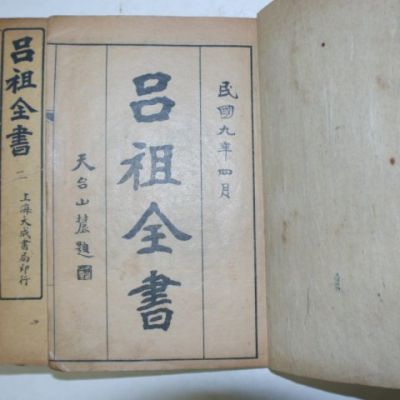 民國九年四月
呂祖全書
天台山農題
呂祖全書
二
上海大成書局印行